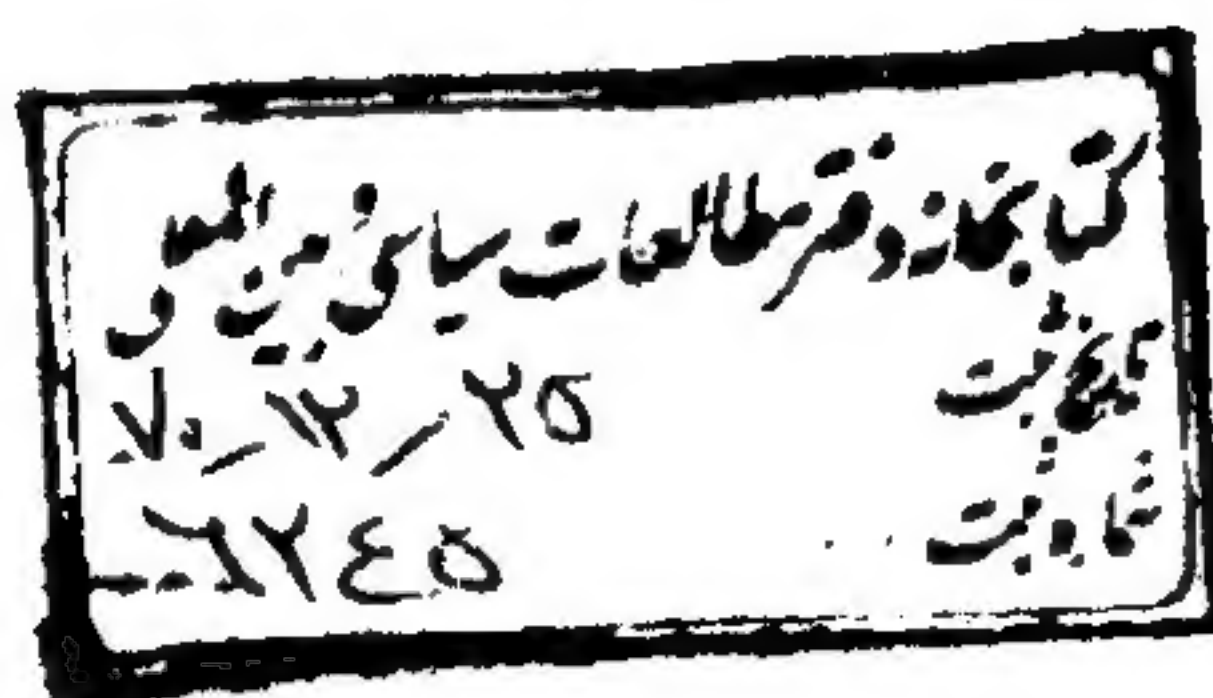 کتابخانه دفتر مطالعات سیاسی و بین المللی
تاریخ ثبت ۷۰-۱۲/۲۵
شماره ثبت ٦٢٤٥